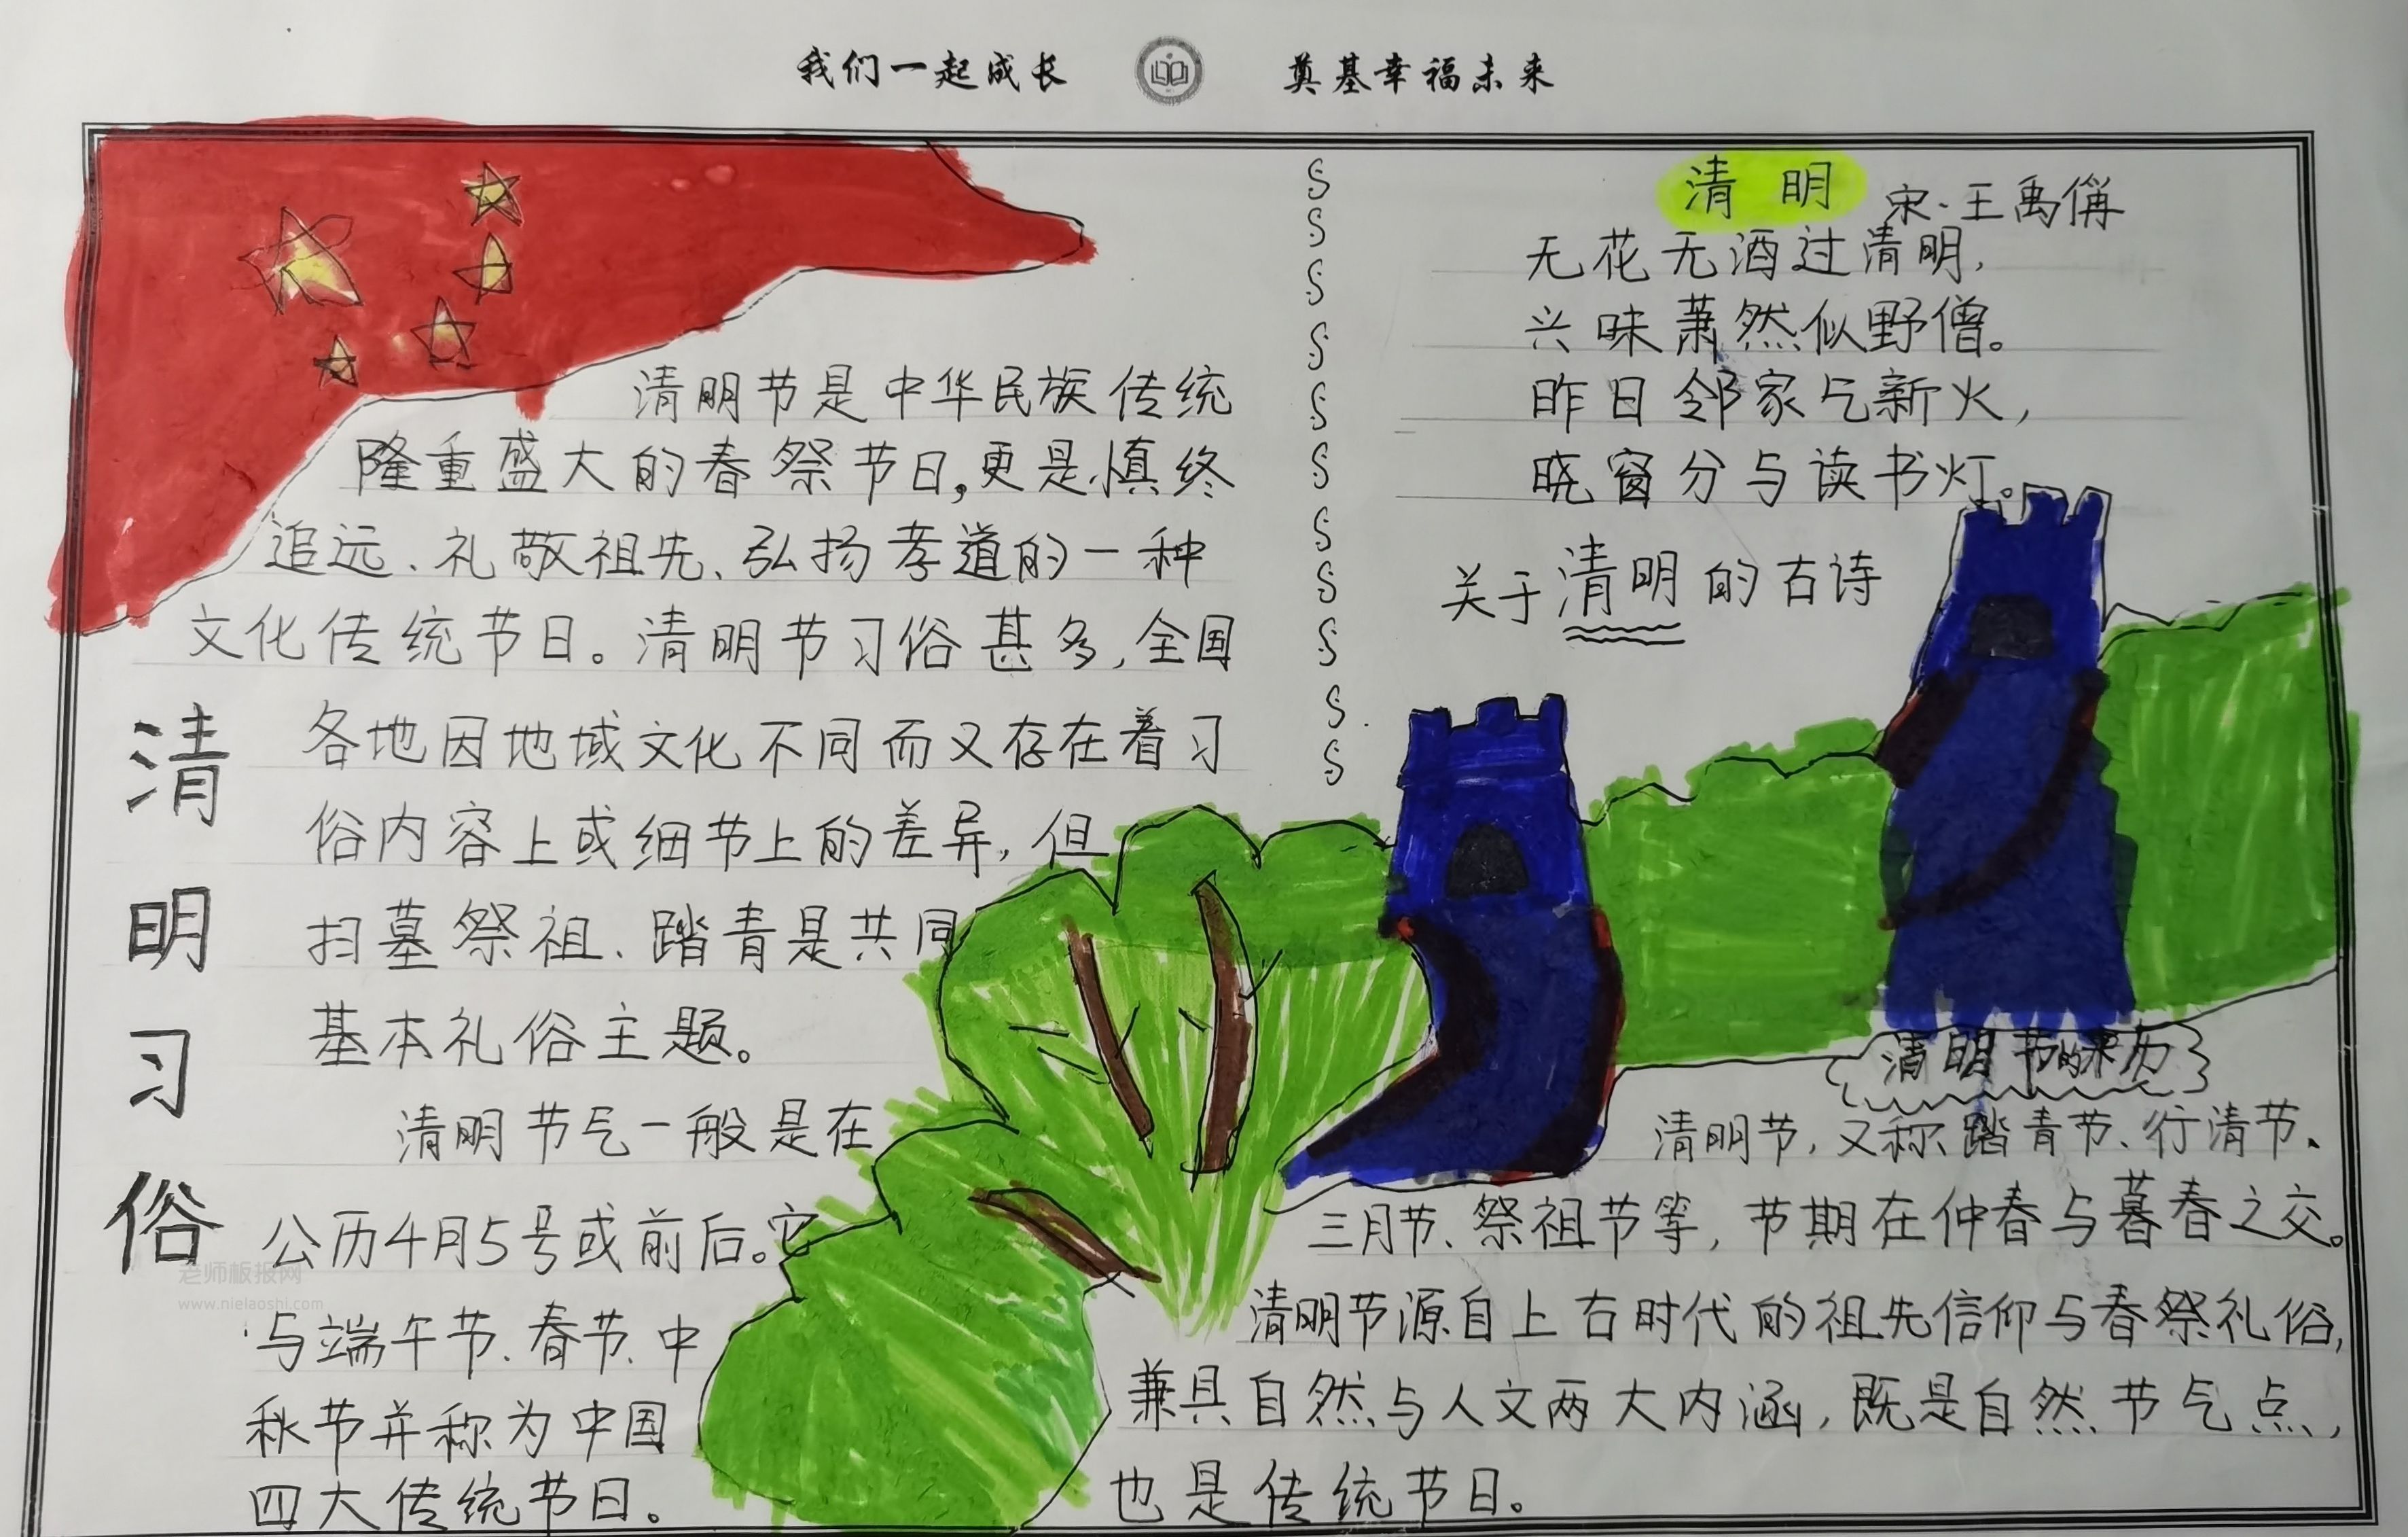 我们一起成长 奠基幸福未来
清明节是中华民族传统
隆重盛大的春祭节日,更是慎终
追远、礼敬祖先、弘扬孝道的一种
文化传统节日。清明节习俗甚多,全国
各地因地域文化不同而又存在着习
俗内容上或细节上的差异,但
扫墓祭祖、踏青是共同
基本礼俗主题。
清明节气一般是在
公历4月5号或前后。它
与端午节、春节、中
秋节并称为中国
四大传统节日。
清明习俗
清明 宋·王禹偁
无花无酒过清明,
兴味萧然似野僧。
昨日邻家乞新火,
晓窗分与读书灯。
关于清明的古诗
清明节的来历
清明节,又称踏青节、行清节、
三月节、祭祖节等,节期在仲春与暮春之交。
清明节源自上右时代的祖先信仰与春祭礼俗,
兼具自然与人文两大内涵,既是自然节气点,
也是传统节日。
老师板报网
www.nielaoshi.com